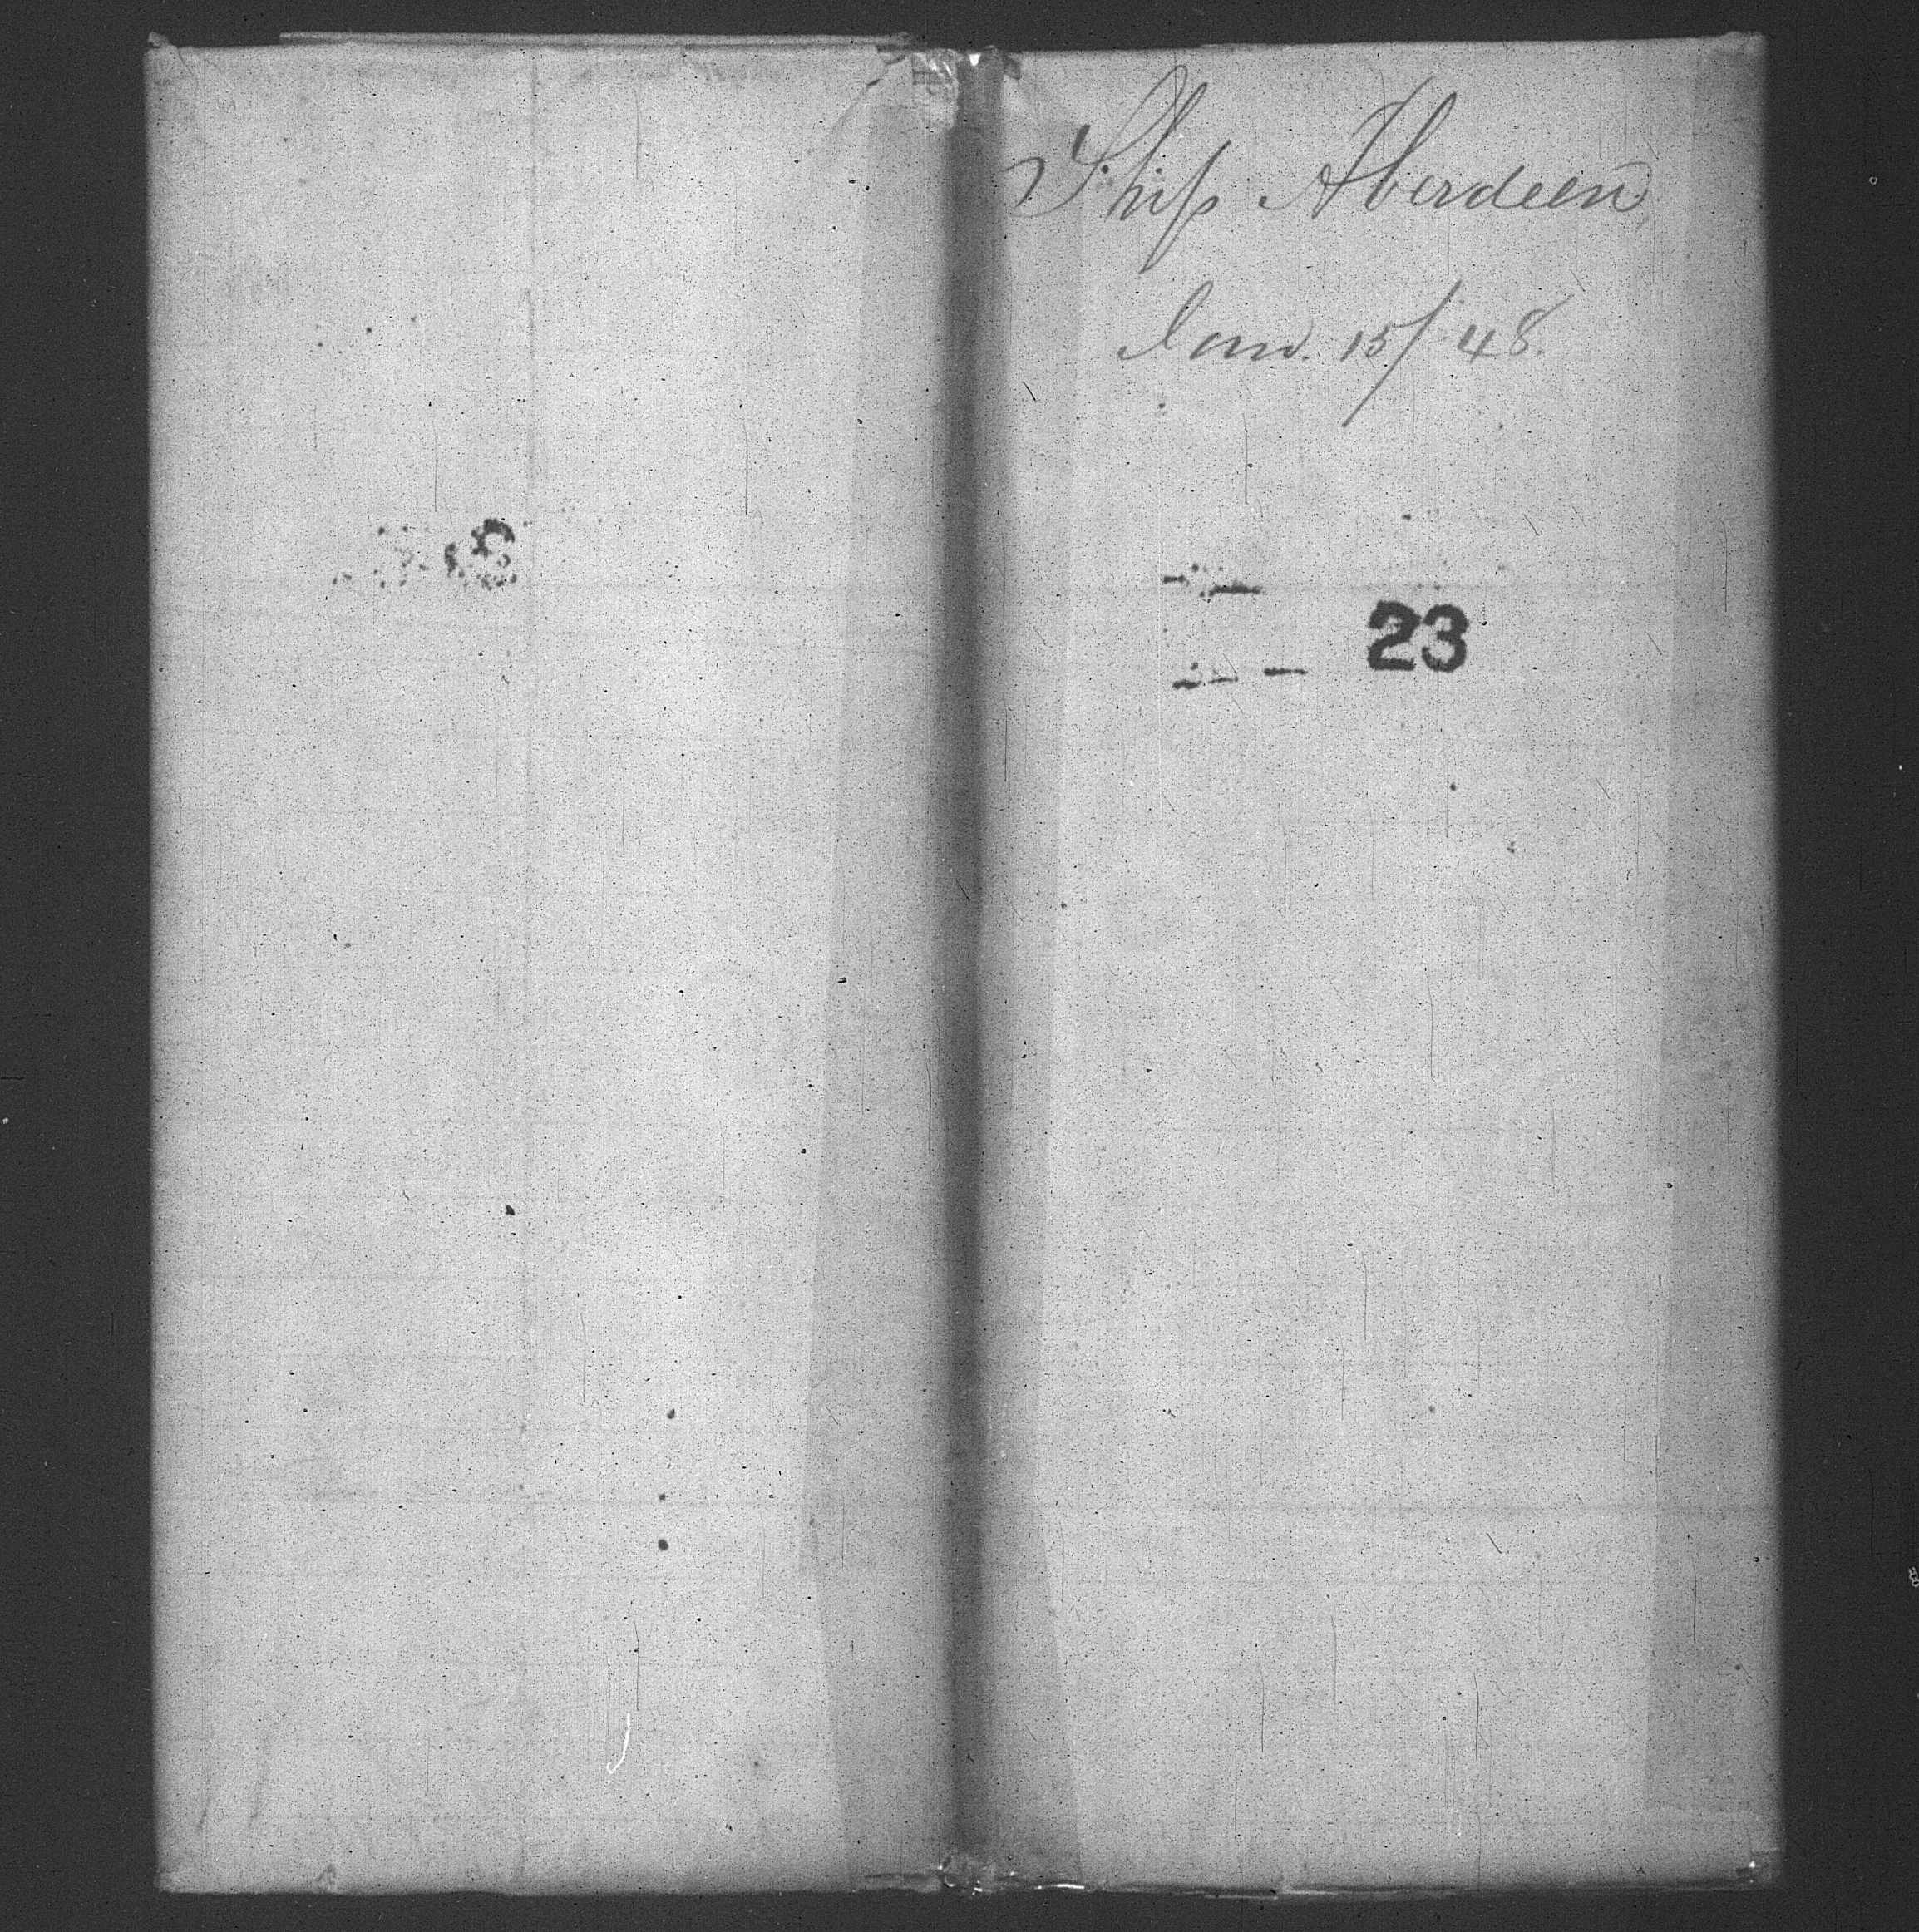 Ship Aberdeen
Jany. 15/48.
23